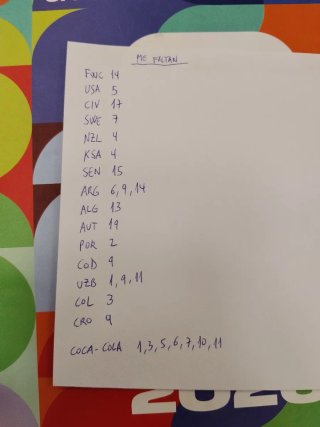 ME FALTAN
FWC 14
USA 5
CIV 17
SWE 7
NZL 4
KSA 4
SEN 15
ARG 6, 9, 14
ALG 13
AUT 19
POR 2
COD 9
UZB 1, 9, 11
COL 3
CRO 9
COCA-COLA 1, 3, 5, 6, 7, 10, 11
2026